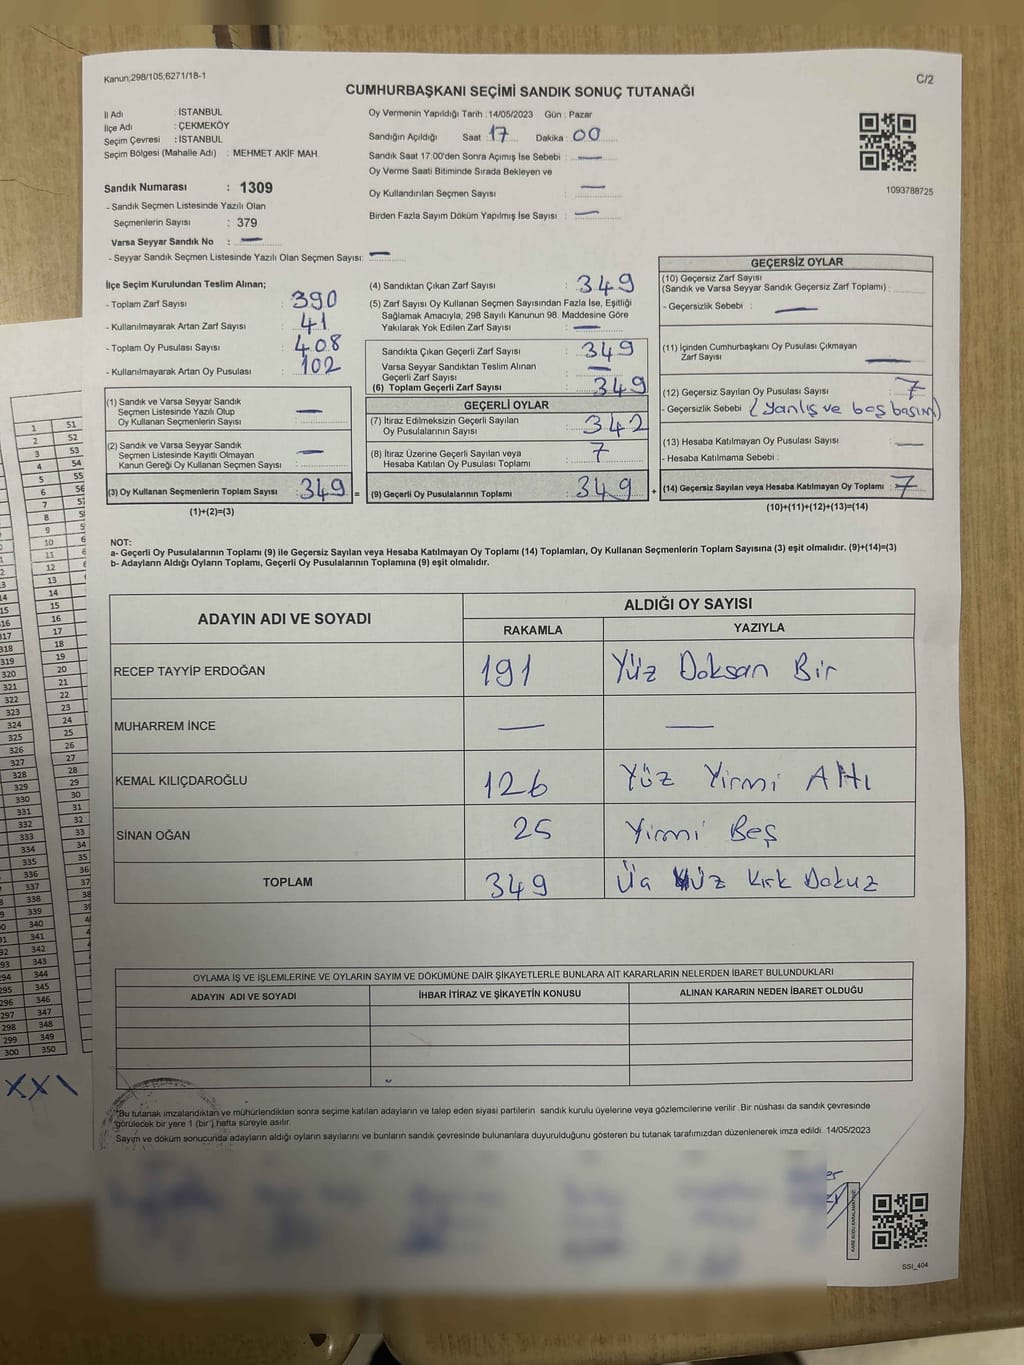 Kanun;298/105;6271/18-1
C/2
CUMHURBAŞKANI SEÇİMİ SANDIK SONUÇ TUTANAĞI
İl Adı : İSTANBUL
İlçe Adı : ÇEKMEKÖY
Seçim Çevresi : İSTANBUL
Seçim Bölgesi (Mahalle Adı) : MEHMET AKİF MAH.
Sandık Numarası : 1309
- Sandık Seçmen Listesinde Yazılı Olan
Seçmenlerin Sayısı : 379
Varsa Seyyar Sandık No : —
- Seyyar Sandık Seçmen Listesinde Yazılı Olan Seçmen Sayısı: —
Oy Vermenin Yapıldığı Tarih : 14/05/2023 Gün : Pazar
Sandığın Açıldığı Saat : 17 Dakika : 00
Sandık Saat 17:00'den Sonra Açımış İse Sebebi : —
Oy Verme Saati Bitiminde Sırada Bekleyen ve
Oy Kullandırılan Seçmen Sayısı : —
Birden Fazla Sayım Döküm Yapılmış İse Sayısı : —
1093788725
İlçe Seçim Kurulundan Teslim Alınan;
- Toplam Zarf Sayısı : 390
- Kullanılmayarak Artan Zarf Sayısı : 41
- Toplam Oy Pusulası Sayısı : 408
- Kullanılmayarak Artan Oy Pusulası : 102
(1) Sandık ve Varsa Seyyar Sandık
Seçmen Listesinde Yazılı Olup
Oy Kullanan Seçmenlerin Sayısı : —
(2) Sandık ve Varsa Seyyar Sandık
Seçmen Listesinde Kayıtlı Olmayan
Kanun Gereği Oy Kullanan Seçmen Sayısı : —
(3) Oy Kullanan Seçmenlerin Toplam Sayısı : 349 =
(1)+(2)=(3)
(4) Sandıktan Çıkan Zarf Sayısı : 349
(5) Zarf Sayısı Oy Kullanan Seçmen Sayısından Fazla İse, Eşitliği
Sağlamak Amacıyla; 298 Sayılı Kanunun 98. Maddesine Göre
Yakılarak Yok Edilen Zarf Sayısı : —
Sandıkta Çıkan Geçerli Zarf Sayısı : 349
Varsa Seyyar Sandıktan Teslim Alınan
Geçerli Zarf Sayısı : —
(6) Toplam Geçerli Zarf Sayısı : 349
GEÇERLİ OYLAR
(7) İtiraz Edilmeksizin Geçerli Sayılan
Oy Pusulalarının Sayısı : 342
(8) İtiraz Üzerine Geçerli Sayılan veya
Hesaba Katılan Oy Pusulası Toplamı : 7
(9) Geçerli Oy Pusulalarının Toplamı : 349 +
GEÇERSİZ OYLAR
(10) Geçersiz Zarf Sayısı
(Sandık ve Varsa Seyyar Sandık Geçersiz Zarf Toplamı) :
- Geçersizlik Sebebi : —
(11) İçinden Cumhurbaşkanı Oy Pusulası Çıkmayan
Zarf Sayısı : —
(12) Geçersiz Sayılan Oy Pusulası Sayısı : 7
- Geçersizlik Sebebi : (Yanlış ve boş basım)
(13) Hesaba Katılmayan Oy Pusulası Sayısı : —
- Hesaba Katılmama Sebebi :
(14) Geçersiz Sayılan veya Hesaba Katılmayan Oy Toplamı : 7
(10)+(11)+(12)+(13)=(14)
NOT:
a- Geçerli Oy Pusulalarının Toplamı (9) ile Geçersiz Sayılan veya Hesaba Katılmayan Oy Toplamı (14) Toplamları, Oy Kullanan Seçmenlerin Toplam Sayısına (3) eşit olmalıdır. (9)+(14)=(3)
b- Adayların Aldığı Oyların Toplamı, Geçerli Oy Pusulalarının Toplamına (9) eşit olmalıdır.
ADAYIN ADI VE SOYADI ALDIĞI OY SAYISI
RAKAMLA YAZIYLA
RECEP TAYYİP ERDOĞAN 191 Yüz Doksan Bir
MUHARREM İNCE — —
KEMAL KILIÇDAROĞLU 126 Yüz Yirmi Altı
SİNAN OĞAN 25 Yirmi Beş
TOPLAM 349 Üç Yüz Kırk Dokuz
OYLAMA İŞ VE İŞLEMLERİNE VE OYLARIN SAYIM VE DÖKÜMÜNE DAİR ŞİKAYETLERLE BUNLARA AİT KARARLARIN NELERDEN İBARET BULUNDUKLARI
ADAYIN ADI VE SOYADI İHBAR İTİRAZ VE ŞİKAYETİN KONUSU ALINAN KARARIN NEDEN İBARET OLDUĞU
*Bu tutanak imzalandıktan ve mühürlendikten sonra seçime katılan adayların ve talep eden siyasi partilerin sandık kurulu üyelerine veya gözlemcilerine verilir. Bir nüshası da sandık çevresinde
görülecek bir yere 1 (bir) hafta süreyle asılır.
Sayım ve döküm sonucunda adayların aldığı oyların sayılarını ve bunların sandık çevresinde bulunanlara duyurulduğunu gösteren bu tutanak tarafımızdan düzenlenerek imza edildi. 14/05/2023
SSI_404